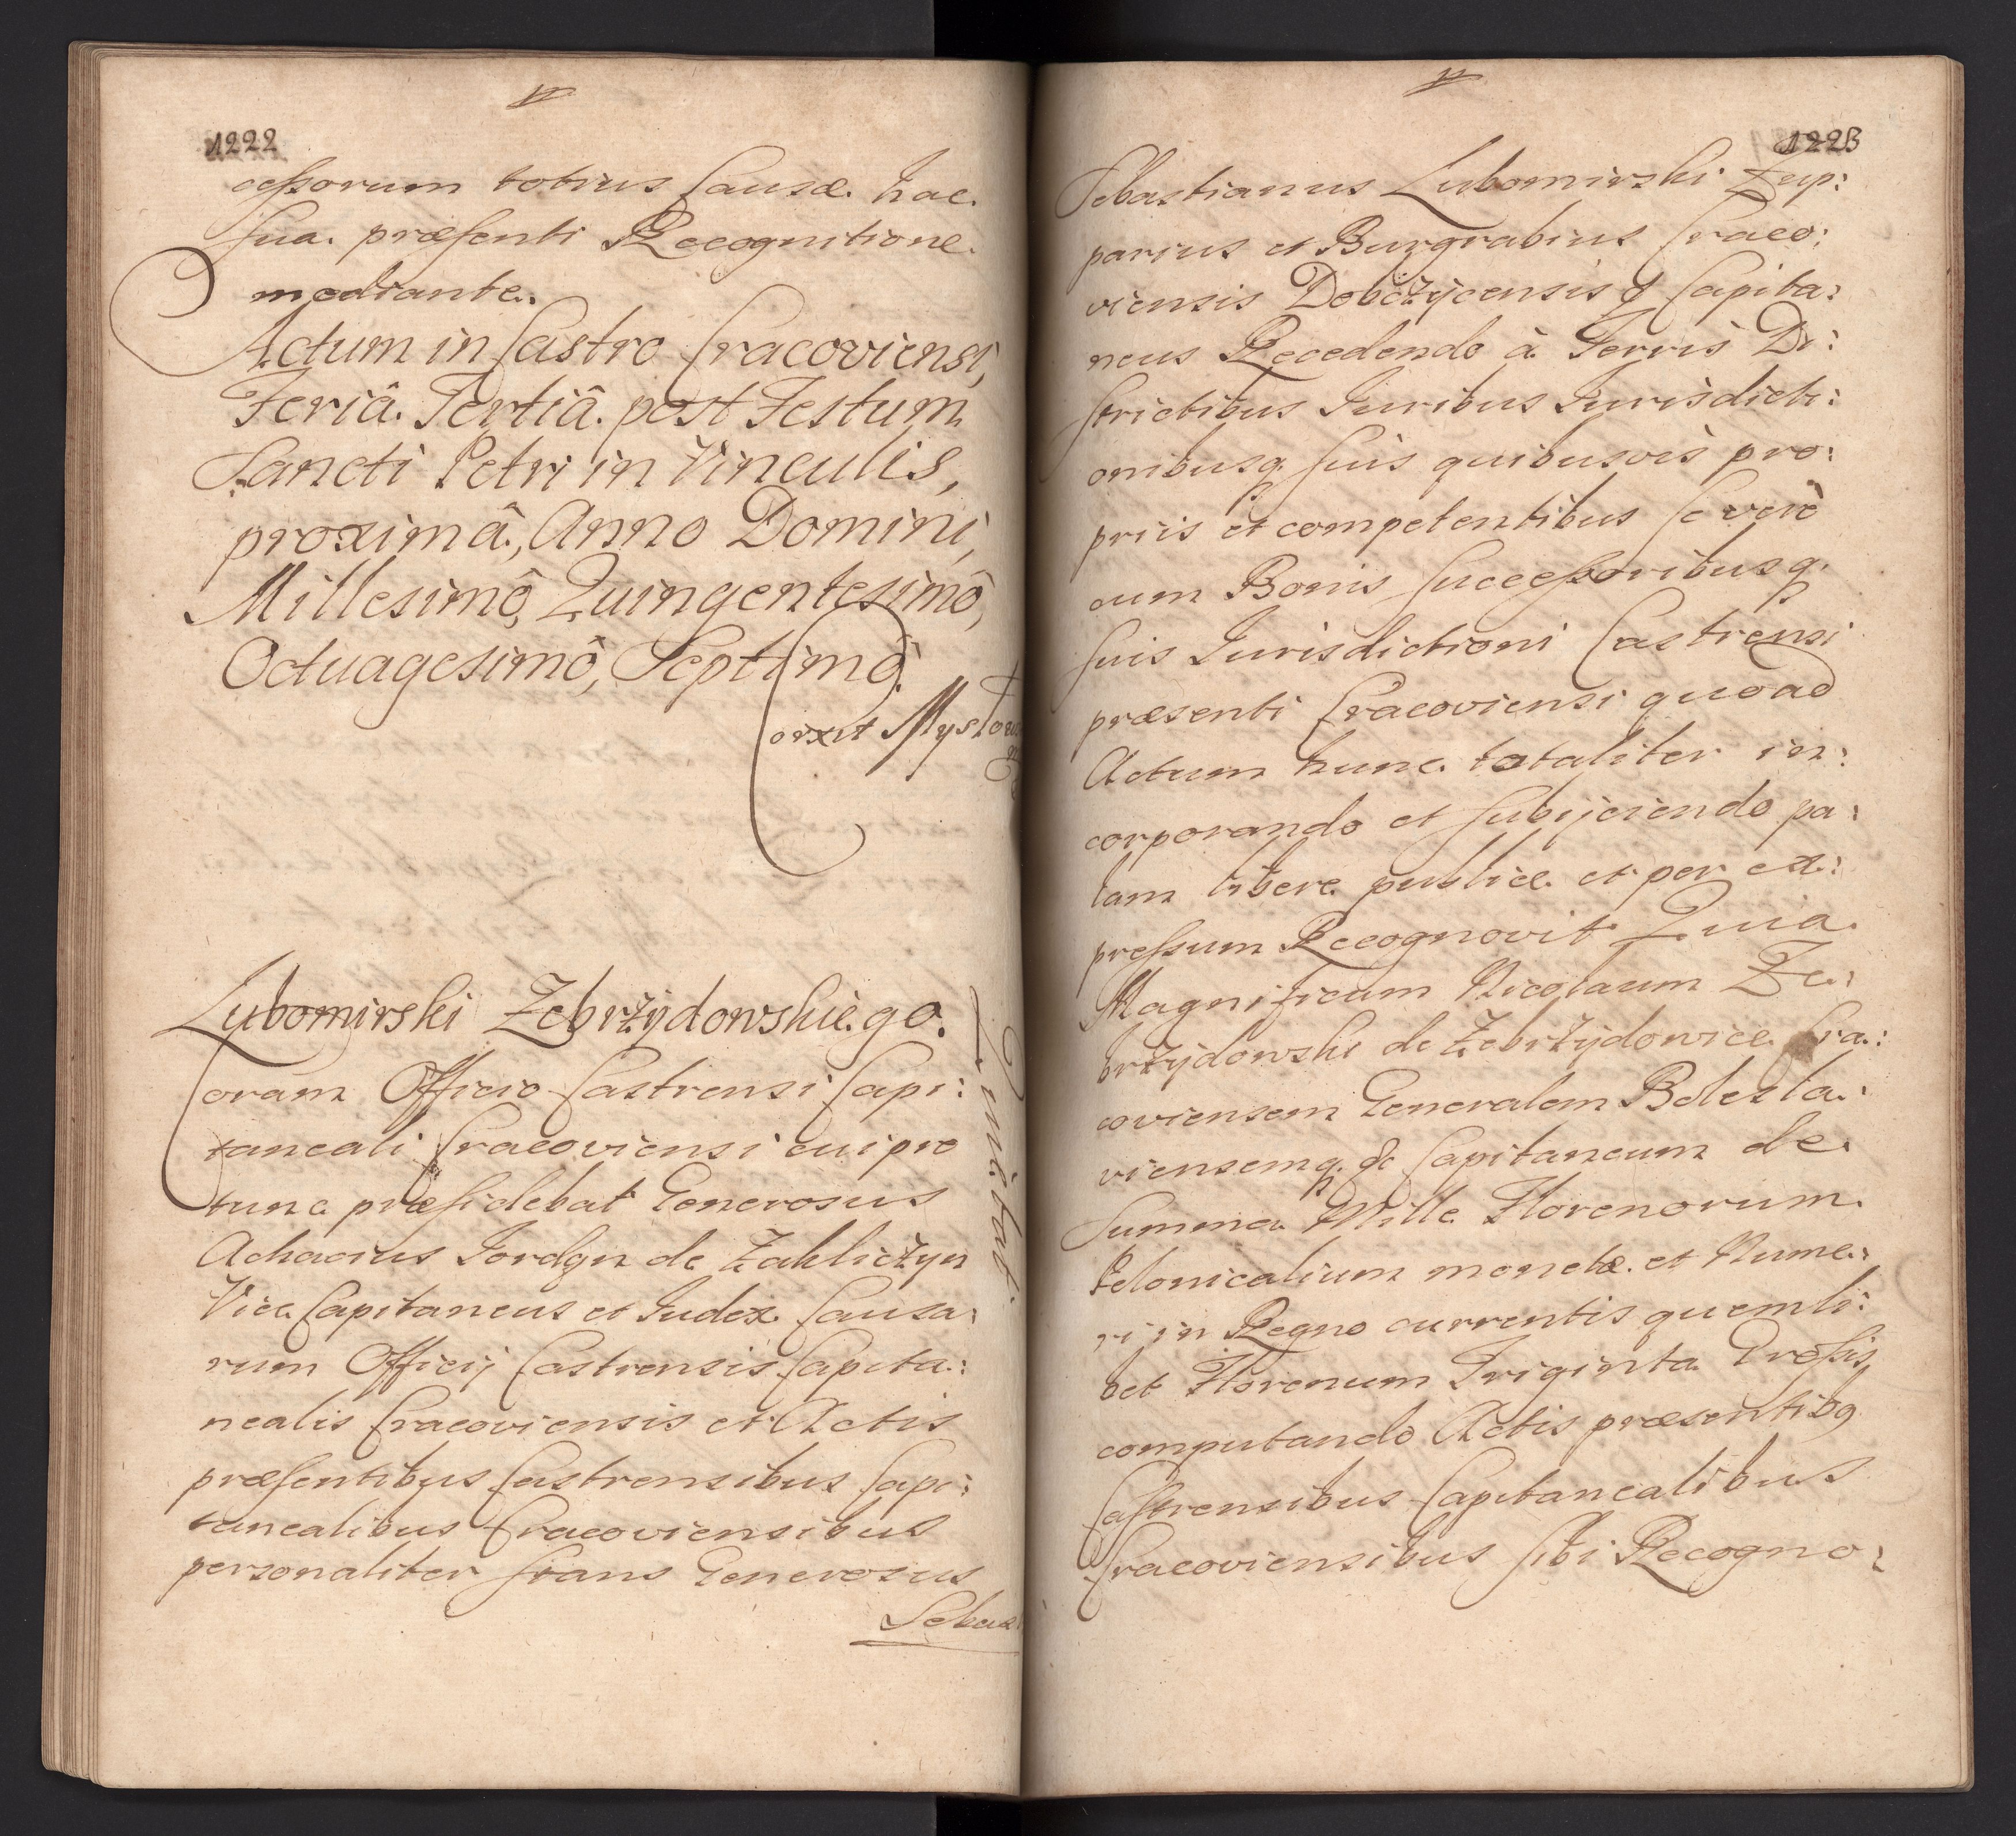 1222
cessorum totius Causæ hac
sua præsenti Recognitione
mediante.
Actum in Castro Cracoviensi,
Feriâ Tertiâ post Festum
Sancti Petri in Vinculis,
proximâ, Anno Domini,
Millesimô, Quingentesimô,
Octuagesimô, Septimô.
Corxit
Lubomirski Zebrżydowskiego.
Quietat
Coram Officio Castrensi Capi:
taneali Cracoviensi cui pro
tunc præsidebat Generosus
Achacius Jordan de Zakliczyn
Vice Capitaneus et Judex Causa:
rum Officij Castrensis Capita:
nealis Cracoviensis et Actis
præsentibus Castrensibus Capi:
tanealibus Cracoviensibus
personaliter stans Generosus
Sebas
1223
Sebastianus Lubomirski Zup:
parius et Burgrabius Craco:
viensis Dobczycensis q Capita:
neus Recedendo à Terris Di:
strictibus Juribus Jurisdicti:
onibusq. suis quibusvis pro:
priis et competentibus se verò
cum Bonis successoribusq.
suis Jurisdictioni Castrensi
præsenti Cracoviensi quoad
Actum hunc totaliter in:
corporando et subijciendo pa:
lam libere publice et per ex:
pressum Recognovit Quia
Magnificum Nicolaum Ze:
brżydowski de Zebrżydowice Cra:
coviensem Generalem Bolesla:
viensemq. & Capitaneum de
Summa Mille Florenorum
Polonicalium monetæ et Nume:
ri in Regno currentis quemli:
bet Florenum Triginta Grossis
computando Actis præsentibq
Castrensibus Capitanealibus
Cracoviensibus sibi Recogno: